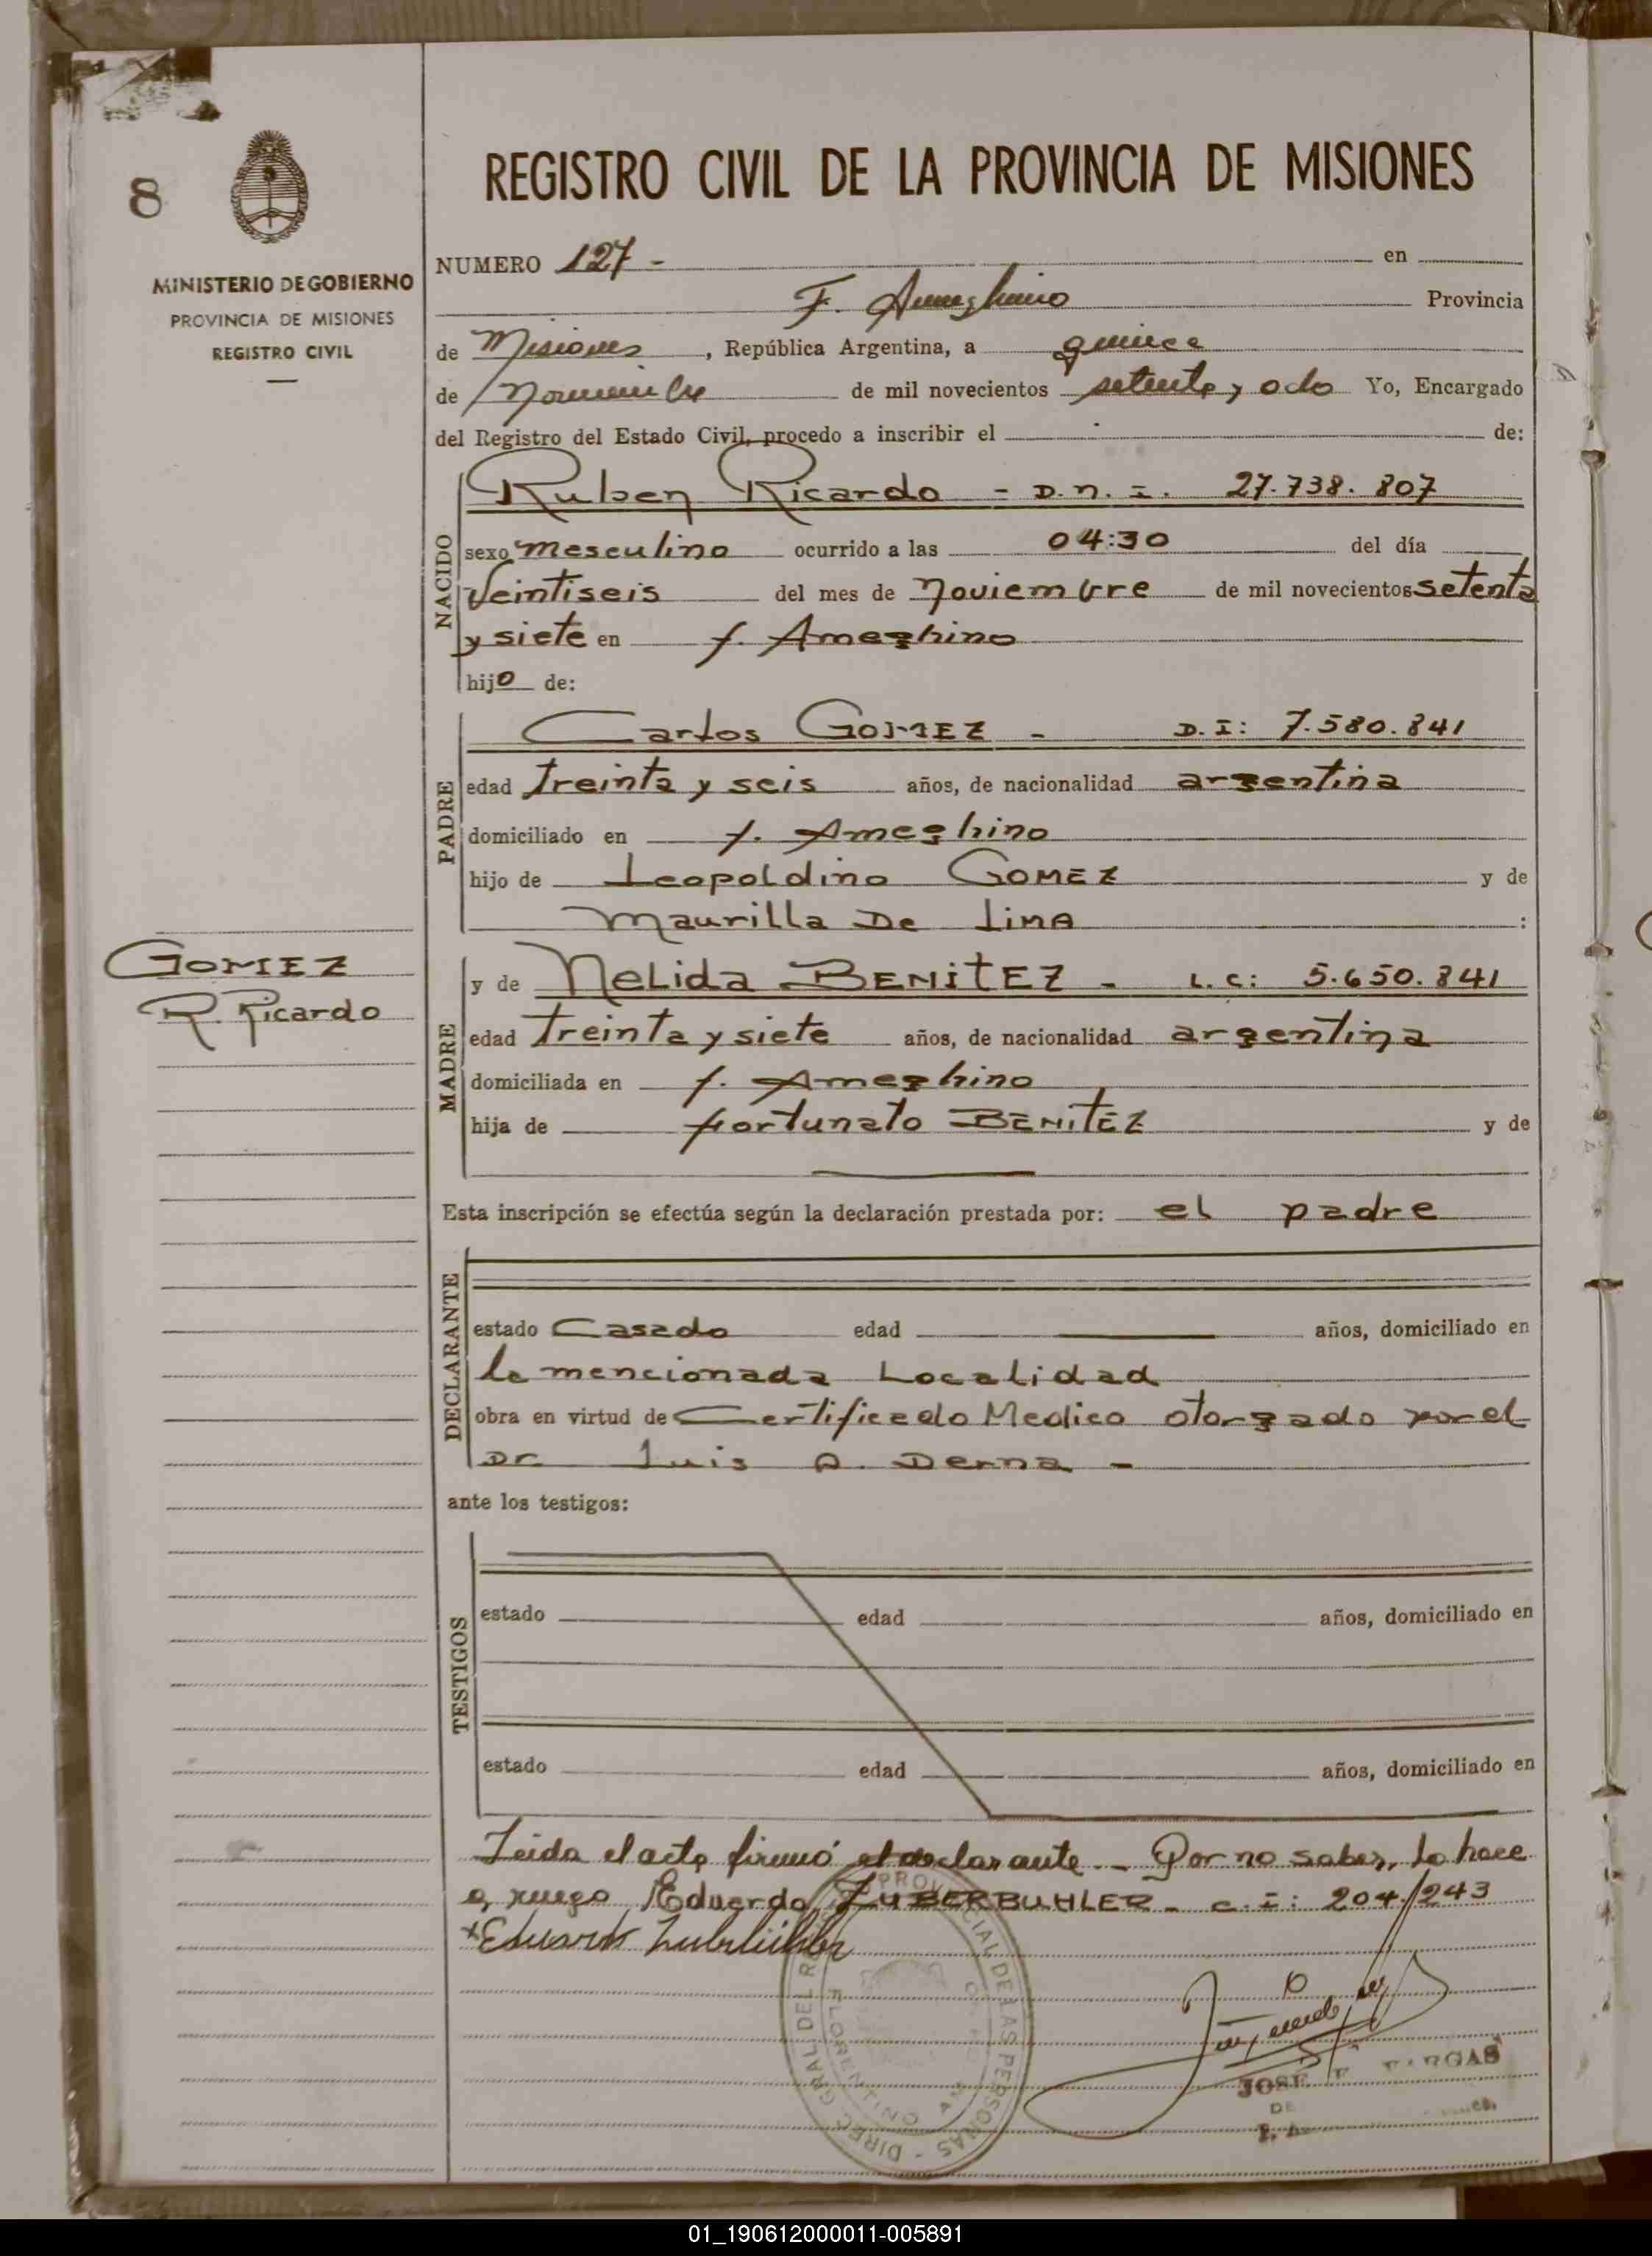 8
MINISTERIO DE GOBIERNO
PROVINCIA DE MISIONES
REGISTRO CIVIL
REGISTRO CIVIL DE LA PROVINCIA DE MISIONES
NUMERO 127 - en
F. Ameghino Provincia
de Misiones, República Argentina, a quince
de Noviembre de mil novecientos setenta y ocho Yo, Encargado
del Registro del Estado Civil, procedo a inscribir el de:
NACIDO
Ruben Ricardo - D.n.I. 27.738.807
sexo mesculino ocurrido a las 04:30 del día
Veintiseis del mes de Noviembre de mil novecientos setenta
y siete en f. Ameghino
hijo de:
PADRE
Carlos GOMEZ - D.I: 7.580.841
edad treinta y seis años, de nacionalidad argentina
domiciliado en f. Ameghino
hijo de Leopoldino GOMEZ y de
Maurilla De LIMA :
GOMEZ
R. Ricardo
MADRE
y de NeLida BENITEZ - L.C: 5.650.841
edad treinta y siete años, de nacionalidad argentina
domiciliada en f. Ameghino
hija de fortunato BENITEZ y de
Esta inscripción se efectúa según la declaración prestada por: el padre
DECLARANTE
estado Casado edad años, domiciliado en
la mencionada Localidad
obra en virtud de Certificado Medico otorgado por el
Dr Luis A. Derna -
ante los testigos:
TESTIGOS
estado edad años, domiciliado en
estado edad años, domiciliado en
Leida el acta firmó el declarante - Por no saber, lo hace
a ruego Eduardo ZUBERBUHLER - C.I: 204.243
Eduardo Zuberbühler
DIREC. GRAL. DEL PROVINCIAL DE LAS PERSONAS
FLORENTINO
JOSE VARGAS
01_190612000011-005891